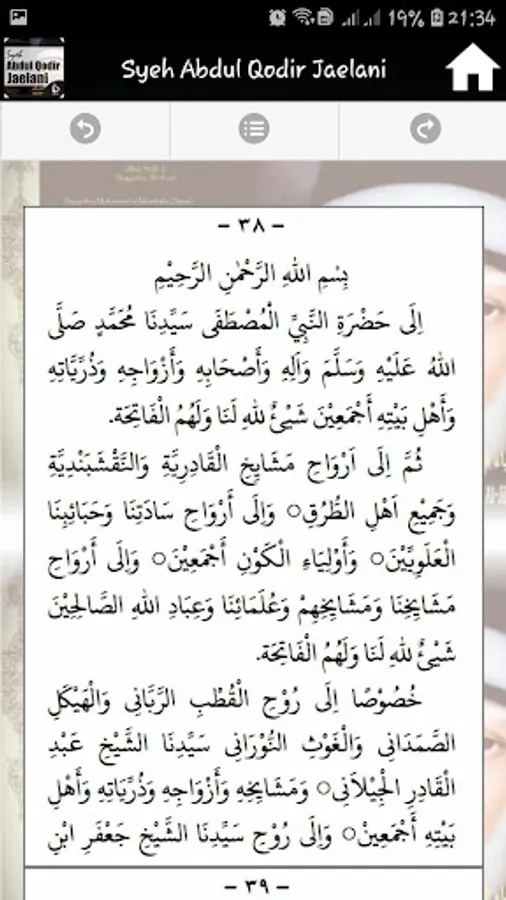 19% 21:34
Syeh
Abdul Qodir
Jaelani
Syeh Abdul Qodir Jaelani
- ٣٨ -
بِسْمِ اللهِ الرَّحْمٰنِ الرَّحِيْمِ
اِلَى حَضْرَةِ النَّبِيِّ الْمُصْطَفَى سَيِّدِنَا مُحَمَّدٍ صَلَّى
اللهُ عَلَيْهِ وَسَلَّمَ وَآلِهِ وَأَصْحَابِهِ وَأَزْوَاجِهِ وَذُرِّيَّاتِهِ
وَأَهْلِ بَيْتِهِ أَجْمَعِيْنَ شَيْئٌ لِلهِ لَنَا وَلَهُمُ الْفَاتِحَة.
ثُمَّ اِلَى اَرْوَاحِ مَشَايِخِ الْقَادِرِيَّةِ وَالنَّقْشَبَنْدِيَّةِ
وَجَمِيْعِ اَهْلِ الطُّرُقِ○ وَاِلَى أَرْوَاحِ سَادَتِنَا وَحَبَائِبِنَا
الْعَلَوِيِّيْنَ○ وَأَوْلِيَاءِ الْكَوْنِ أَجْمَعِيْنَ○ وَاِلَى أَرْوَاحِ
مَشَايِخِنَا وَمَشَايِخِهِمْ وَعُلَمَائِنَا وَعِبَادِ اللهِ الصَّالِحِيْنَ
شَيْئٌ لِلهِ لَنَا وَلَهُمُ الْفَاتِحَة.
خُصُوْصًا اِلَى رُوْحِ الْقُطْبِ الرَّبَّانِى وَالْهَيْكَلِ
الصَّمَدَانِى وَالْغَوْثِ النُّوْرَانِى سَيِّدِنَا الشَّيْخِ عَبْدِ
الْقَادِرِ الْجِيْلَانِى○ وَمَشَايِخِهِ وَأَزْوَاجِهِ وَذُرِّيَاتِهِ وَأَهْلِ
بَيْتِهِ أَجْمَعِيْنَ○ وَاِلَى رُوْحِ سَيِّدِنَا الشَّيْخِ جَعْفَرِ ابْنِ
- ٣٩ -